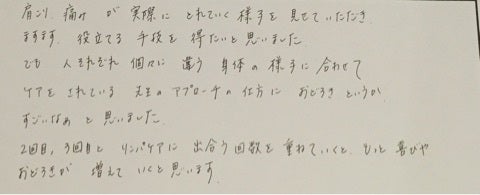 肩こり、痛みが実際にとれていく様子を見せていただき、
ますます、役立てる手技を得たいと思いました。
でも 人それぞれ 個々に 違う 身体の様子に合わせて
ケアをされている 先生のアプローチの仕方に おどろきというか、
すごいなぁと思いました。
2回目、3回目と リンパケアに出合う回数を重ねていくと、もっと喜びや
おどろきが 増えていくと思います。